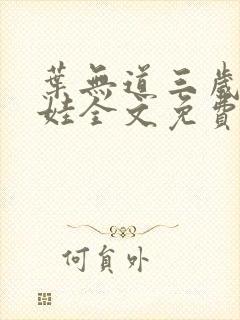 葉無道三歲
娃全文免費
何員外